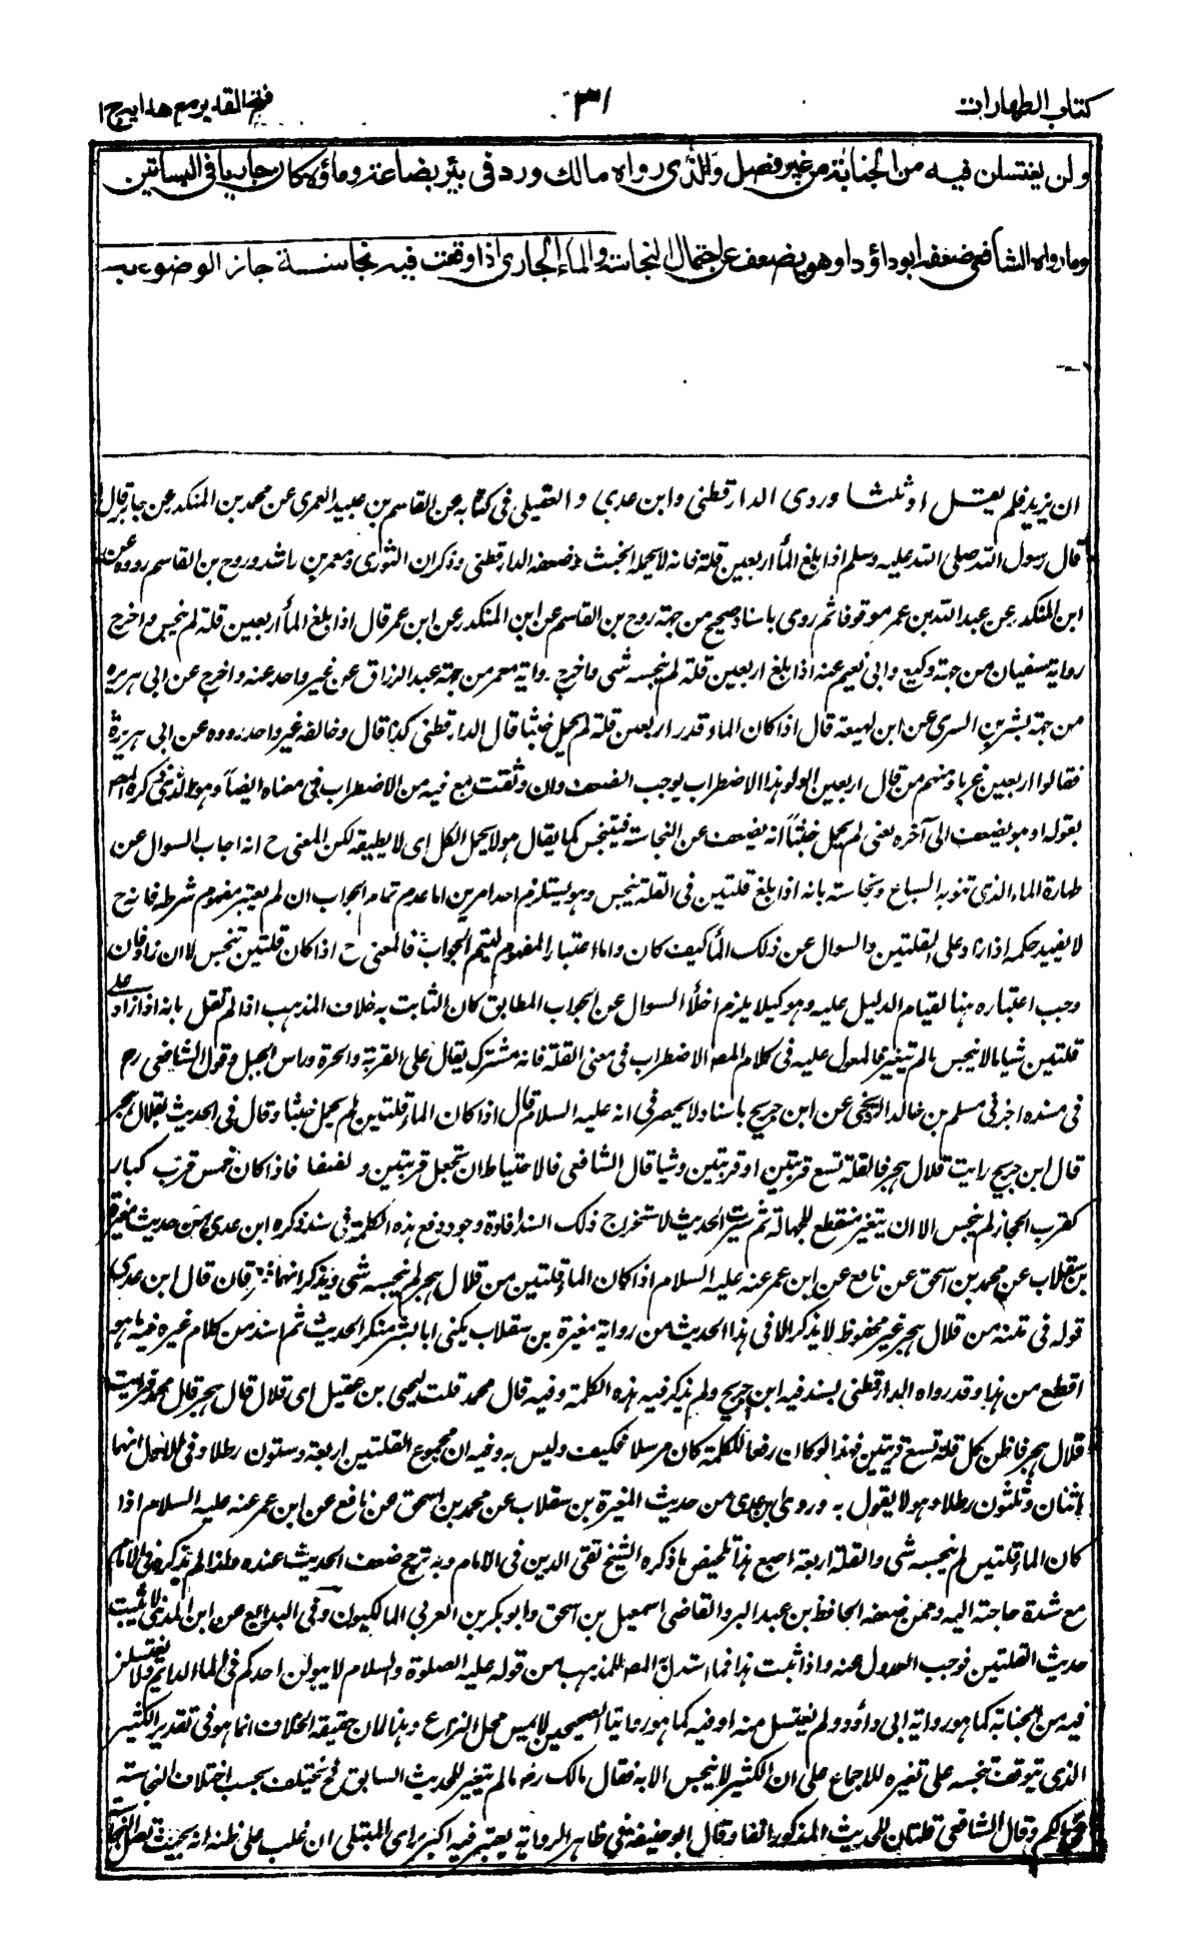 كتاب الطهارات
٣١
فتح القدير مع هدايه ج ١
ولن يغتسلن فيه من الجنابة من غير فصل والذى رواه مالك ورد فى بئر بضاعة وماؤه كان جاريا فى البساتين
وما رواه الشافعى ضعفه ابو داؤد او هو يضعف عن احتمال النجاسة والماء الجارى اذا وقعت فيه نجاسة جاز الوضوء به
ان يزيد فلم يقتل او ثلثا وروى الدارقطنى وابن عدى والعقيلى فى كتابه عن القاسم بن عبيد العمرى عن محمد بن المنكدر عن جابر قال
قال رسول الله صلى الله عليه وسلم اذا بلغ الماء اربعين قلة فانه لا يحمل الخبث وضعفه الدارقطنى وذكر ان الثورى ومعمر بن راشد وروح بن القاسم رووه عن
ابن المنكدر عن عبد الله بن عمر موقوفا ثم روى باسناد صحيح من جهة روح بن القاسم عن ابن المنكدر عن ابن عمر قال اذا بلغ الماء اربعين قلة لم ينجس واخرج
رواية سفيان من جهة وكيع وابى نعيم عنه اذا بلغ اربعين قلة لم ينجسه شى واخرج رواية معمر من جهة عبد الرزاق عن غير واحد عنه واخرج عن ابى هريرة
من جهة بشر بن السرى عن ابن لهيعة قال اذا كان الماء قدر اربعين قلة لم يحمل خبثا قال الدارقطنى كذا قال وخالفه غير واحد رووه عن ابى هريرة
فقالوا اربعين غربا ومنهم من قال اربعين دلوا وهذا الاضطراب يوجب الضعف وان وثقت مع فيه من الاضطراب فى معناه ايضا وهو الذى ذكره المص
بقوله او هو يضعف الى آخره يعنى لم يحمل خبثا انه يضعف عن النجاسة فيتنجس كما يقال هو لا يحمل الكل اى لا يطيقه لكن المعنى ح انه اجاب السوال عن
طهارة الماء الذى تنوبه السباع ونجاسته بانه اذا بلغ قلتين فى القلة ينجس وهو يستلزم احد امرين اما عدم تمام الجواب ان لم يعتبر مفهوم شرطه فانه ح
لا يفيد حكمه اذا زاد على القلتين والسوال عن ذلك الماء كيف كان واما اعتبار المفهوم ليتم الجواب فالمعنى ح اذا كان قلتين تنجس لا ان زاد فان
وجب اعتباره هنا لقيام الدليل عليه وهو كيلا يلزم اخلاء السوال عن الجواب المطابق كان الثابت به خلاف المذهب اذا لم نقل بانه اذا زاد على
قلتين شيا ما لا ينجس ما لم يتغير فالمعول عليه فى كلام المص الاضطراب فى معنى القلة فانه مشترك يقال على القربة والجرة وراس الجبل وقول الشافعى رح
فى مسنده اخبرنى مسلم بن خالد الزنجى عن ابن جريج باسناد لا يحضرنى انه عليه السلام قال اذا كان الماء قلتين لم يحمل خبثا وقال فى الحديث بقلال هجر
قال ابن جريج رايت قلال هجر فالقلة تسع قربتين او قربتين وشيا قال الشافعى فالاحتياط ان تجعل قربتين ونصفا فاذا كان خمس قرب كبار
كقرب الحجاز لم ينجس الا ان يتغير منقطع للجهالة ثم الحديث لاستخراج ذلك السند افادة وجود رفع هذه الكلمة فى سند ذكره ابن عدى من حديث مغيرة
بن سقلاب عن محمد بن اسحق عن نافع عن ابن عمر عنه عليه السلام اذا كان الماء قلتين من قلال هجر لم ينجسه شى ويذكر انهما فرقان قال ابن عدى
قوله فى متنه من قلال هجر غير محفوظ لا يذكر الا فى هذا الحديث من رواية مغيرة بن سقلاب يكنى ابا بشر منكر الحديث ثم اسند من كلام غيره فيه ما هو
اقطع من هذا وقد رواه الدارقطنى بسند فيه ابن جريج ولم يذكر فيه هذه الكلمة وفيه قال محمد قلت ليحيى بن عقيل اى قلال قال قلال هجر قال محمد فرايت
قلال هجر فاظن كل قلة تسع قربتين فهذا لو كان رفعا للكلمة كان مرسلا فكيف وليس به وفيه ان مجموع القلتين اربعة وستون رطلا وفى الاول انهما
اثنان وثلثون رطلا وهو لا يقول به وروى ابن عدى من حديث المغيرة بن سقلاب عن محمد بن اسحق عن نافع عن ابن عمر عنه عليه السلام اذا
كان الماء قلتين لم ينجسه شى والقلة اربعة اصع هذا تلخيص ما ذكره الشيخ تقى الدين فى الامام وبه ترجح ضعف الحديث عنده ولذا لم يذكره فى الالمام
مع شدة حاجته اليه وممن ضعفه الحافظ بن عبد البر والقاضى اسمعيل بن اسحق وابو بكر بن العربى المالكيون وفى البدائع عن ابن المدينى لا يثبت
حديث القلتين فوجب العدول عنه واذا ثبت هذا فما استدل به المص للمذهب من قوله عليه الصلوة والسلام لا يبولن احدكم فى الماء الدائم ولا يغتسلن
فيه من الجنابة كما هو رواية ابى داؤد ولم يغتسل منه او فيه كما هو روايتا الصحيحين لا يمس محل النزاع وهذا لان حقيقة الخلاف انما هو فى تقدير الكثير
الذى يتوقف تنجسه على تغيره للاجماع على ان الكثير لا ينجس الا به فقال مالك رح ما لم يتغير للحديث السابق فح يختلف بحسب اختلاف النجاسة
فى الكم وقال الشافعى قلتان للحديث المذكور انفا وقال ابو حنيفة فى ظاهر الرواية يعتبر فيه اكبر راى المبتلى ان غلب على ظنه انه بحيث تصل النجاسة